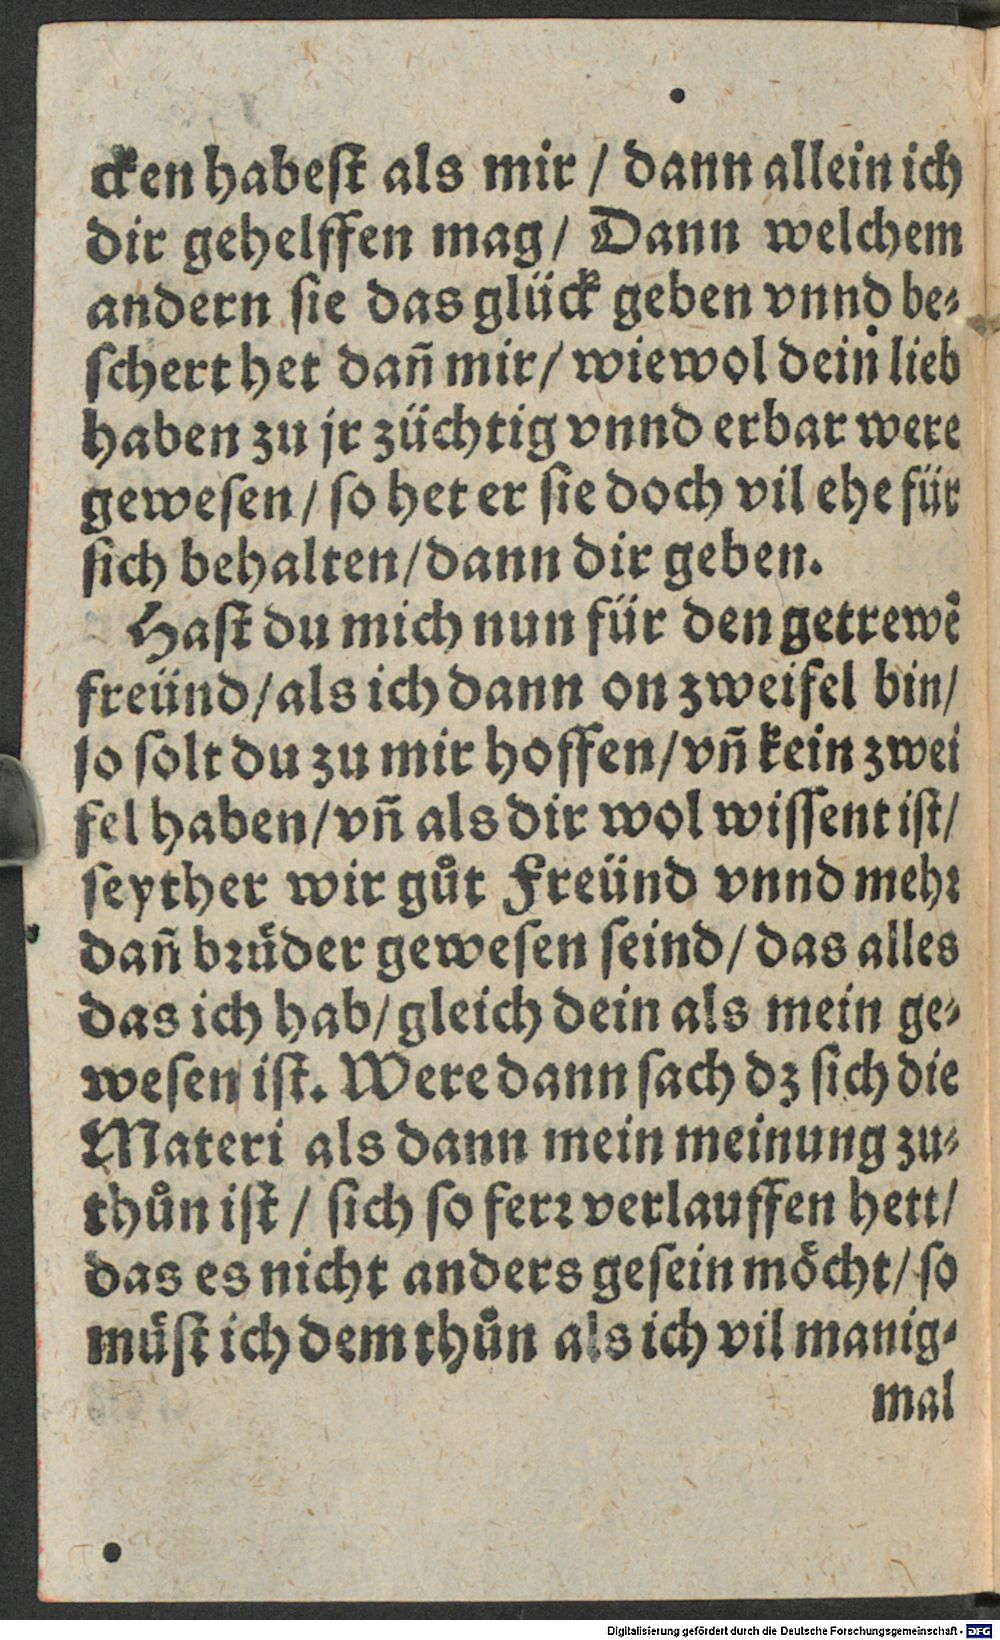 cken habeſt als mir / dann allein ich
dir gehelffen mag / Dann welchem
andern ſie das glück geben vnnd be⸗
ſchert het dañ mir / wiewol dein lieb
haben zu jr züchtig vnnd erbar were
geweſen / ſo het er ſie doch vil ehe für
ſich behalten / dann dir geben.
Haſt du mich nun für den getrewē
freünd / als ich dann on zweifel bin /
ſo ſolt du zu mir hoffen / vñ kein zwei
fel haben / vñ als dir wol wiſſent iſt /
ſeyther wir gůt Freünd vnnd mehꝛ
dañ bꝛuͤder geweſen ſeind / das alles
das ich hab / gleich dein als mein ge⸗
weſen iſt. Were dann ſach dz ſich die
Materi als dann mein meinung zu⸗
thůn iſt / ſich ſo ferꝛ verlauffen hett /
das es nicht anders geſein moͤcht / ſo
muͤſt ich dem thůn als ich vil manig⸗
mal
Digitalisierung gefördert durch die Deutsche Forschungsgemeinschaft - DFG